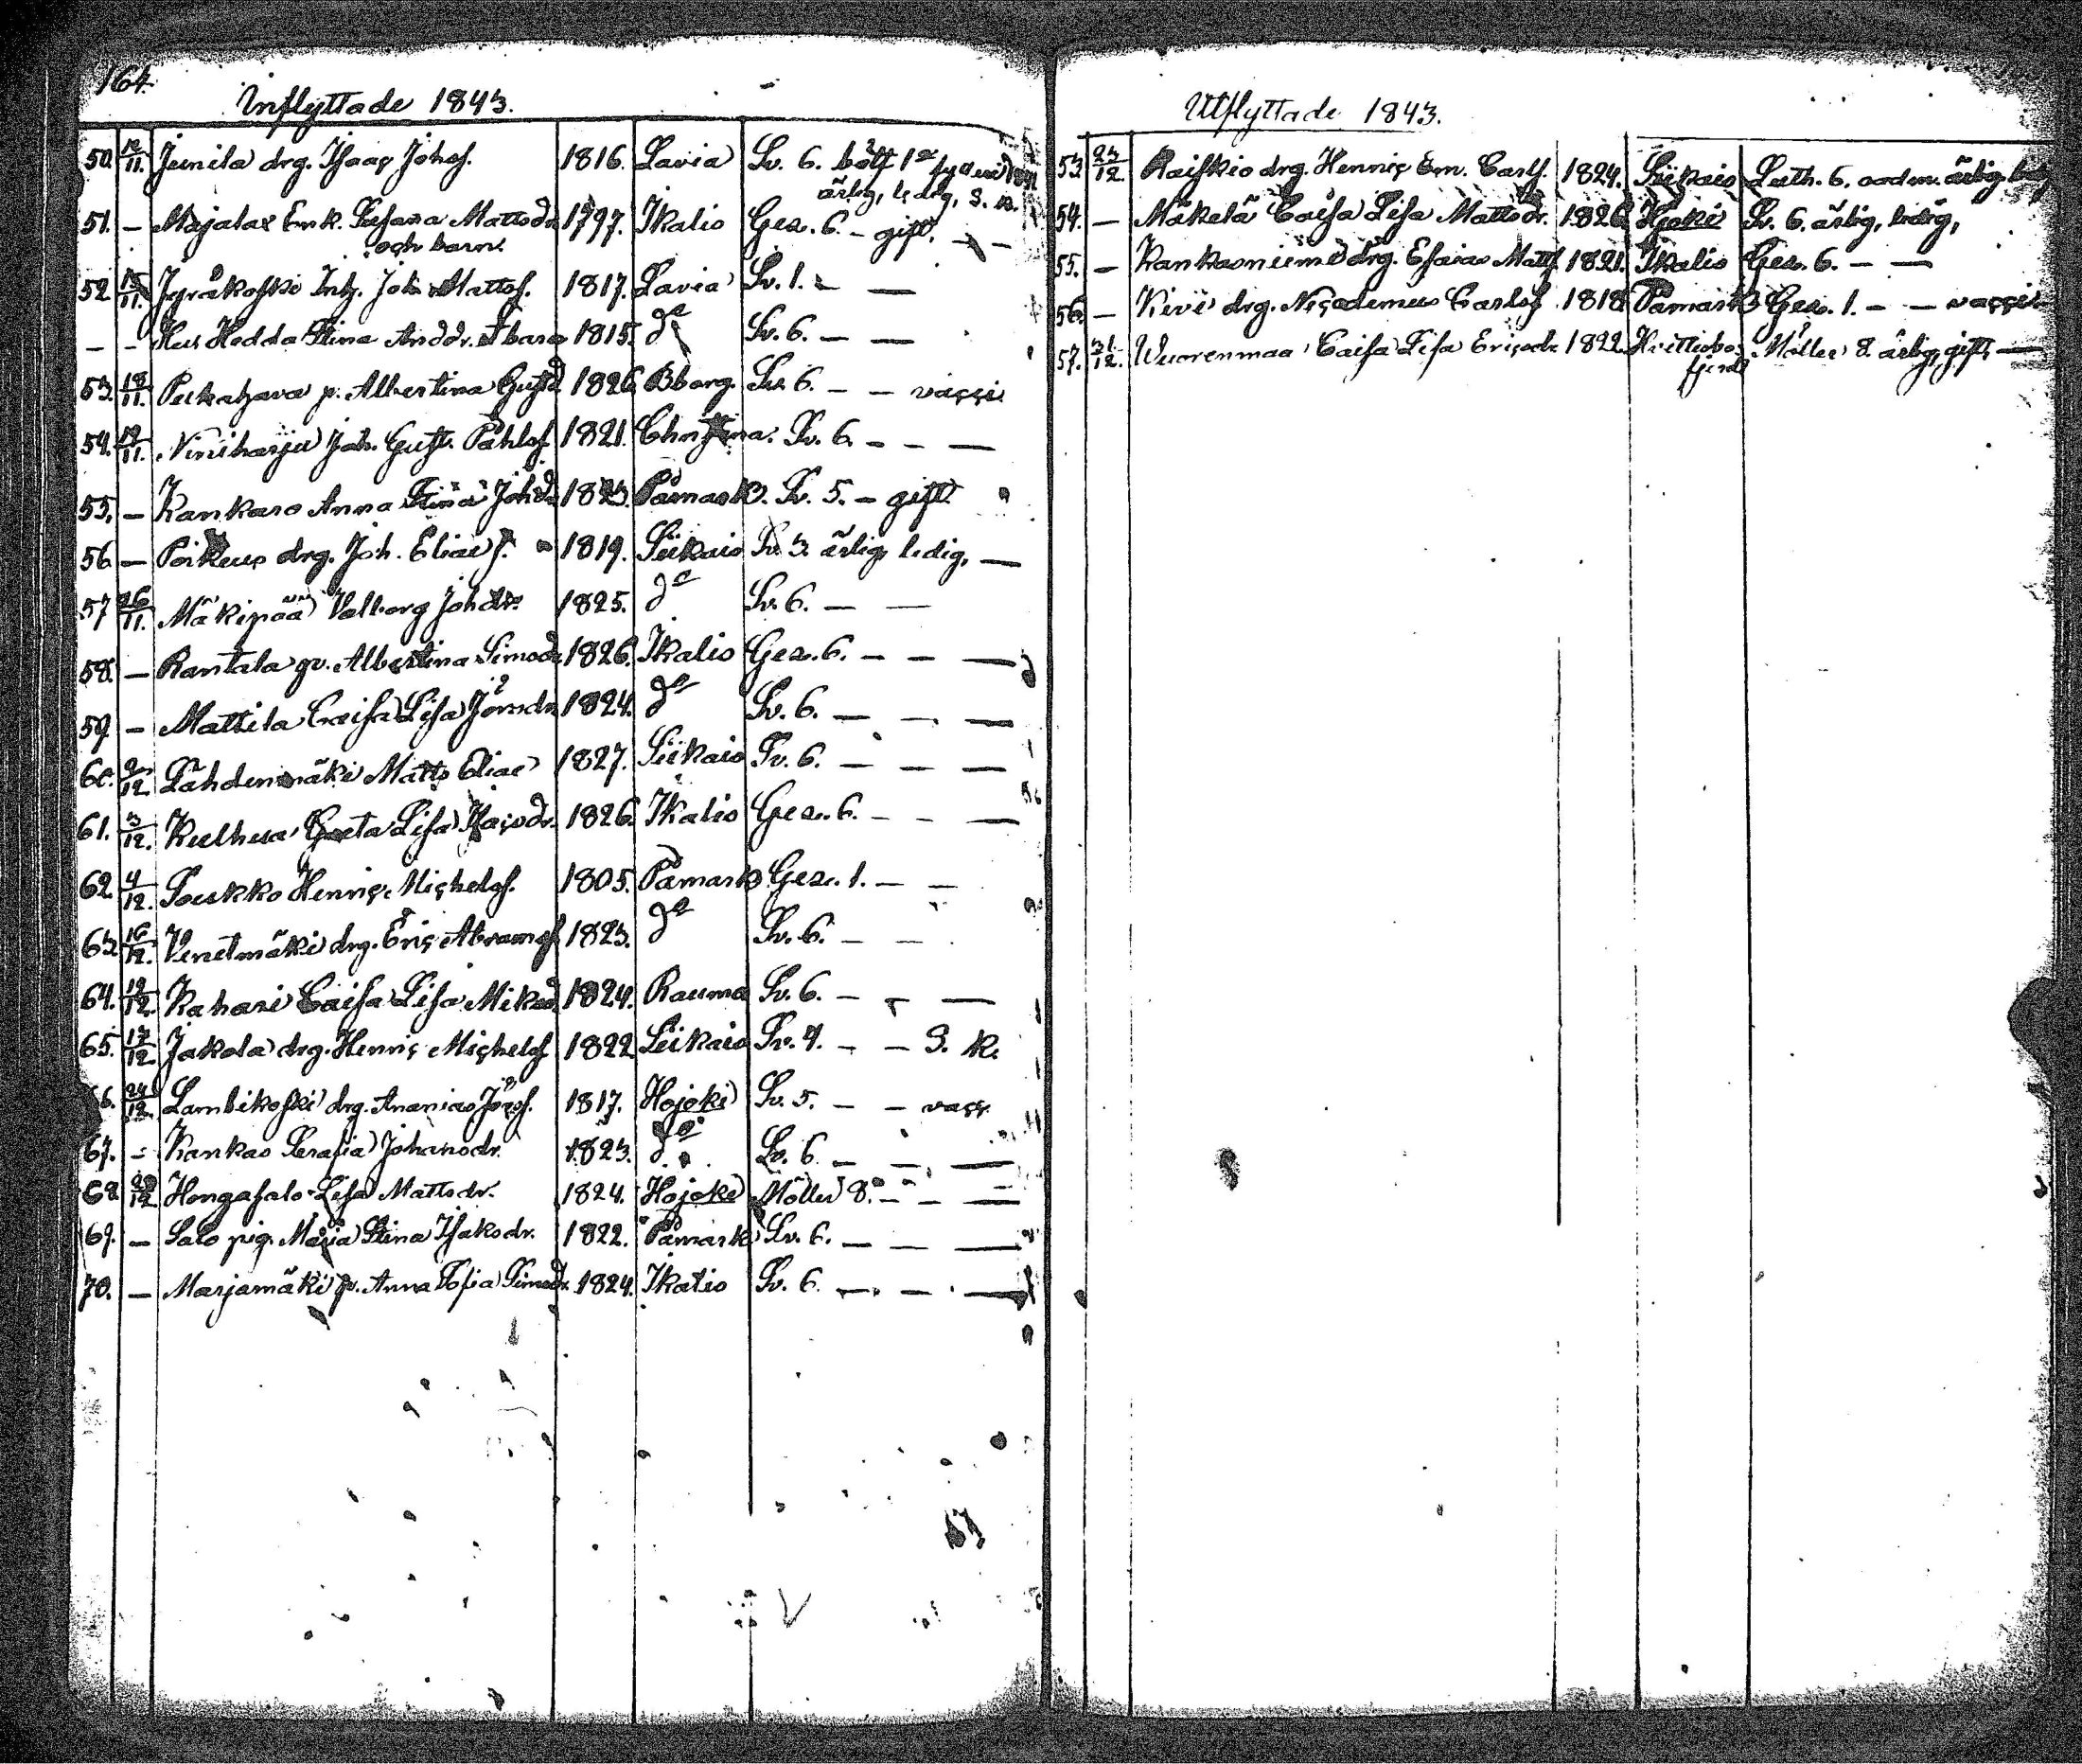 164.
Inflyttade 1843.
50. 12/11. Junila drg. Isaac Johsf. 1816. Lavia Sv. 6. bött 1ª
ärlig, ledig, S. n.
51. — Majalax Enk. Susana Mattsdr. 1797. Ikalis Gez. 6. — gift. — —
och barn.
52. 15/11. Jyräkoski Inh. Joh. Mattsf. 1817. Lavia Sv. 1. — —
— — Hus. Hedda Stina Anddr. 1815. do Sv. 6. — —
53. 18/11. Peltohava p. Albertina Gustd. 1826. Bborg. Sv. 6. — — vacci.
54. 19/11. Niniharju Joh. Gust. Påhlsf. 1821. Christina. Sv. 6. — — —
55. — Kankaro Anna Stina Johdr. 1823. Påmark. Sv. 5. — gift.
56 — Poikeus drg. Joh. Eliæ f. 1819. Siikais Sv. 3. ärlig, ledig, —
57 26/11. Mäkipää Valborg Johdr. 1825. do Sv. 6. — —
58. — Rantala qv. Albertina Simodr. 1826. Ikalis Gez. 6. — — —
59. — Mattila Caisa Lisa Jörnsdr. 1824. do Sv. 6. — — —
60. 2/12. Lähdenmäki Matts Eliae 1827. Siikais Sv. 6. — — —
61. 3/12. Kulhua Greta Lisa Isacsdr. 1826. Ikalis Gez. 6. — — —
62 4/12. Soukko Henric Michelsf. 1805. Påmark Gez. 1. — —
63. 16/12. Venetmäki drg. Eric Abramsf. 1823. do Sv. 6. — —
64. 19/12. Kahari Caisa Lisa Miksd. 1824. Rauma Sv. 6. — — —
65. 17/12. Jakola drg. Henric Michelsf. 1822 Siikais Sv. 4. — — S. k.
66. 24/12. Lambikoski drg. Ananias Jöransf. 1817. Hojoki Sv. 5. — — vacc.
67. — Kankas Serafia Johansdr. 1823. do Sv. 6 — — —
68. 29/12 Hongasalo Lisa Mattsdr. 1824. Hojoki Möller 8. — — —
69. — Salo pig. Maria Stina Isaksdr. 1822. Påmark Sv. 6. — — —
70. — Marjamäki p. Anna Sofia Simsdr. 1824. Ikalis Sv. 6. — — —
Utflyttade 1843.
53. 23/12. Raiskio drg. Henric Em. Carlf. 1824. Siikais Luth. 6. ärlig
54. — Mäkelä Caisa Lisa Mattsdr. 1826 Hojoki Sv. 6. ärlig, ledig,
55. — Kankasniemi drg. Esaias Mattsf. 1821. Ikalis Gez. 6. — —
56. — Kivi drg. Nicodemus Carlsf. 1818 Påmark Gez. 1. — — vaccin
57. 31/12. Wuorenmaa Caisa Lisa Ericsdr. 1822. Hvittisbo Möller 8. ärlig, gift, —
fjerd